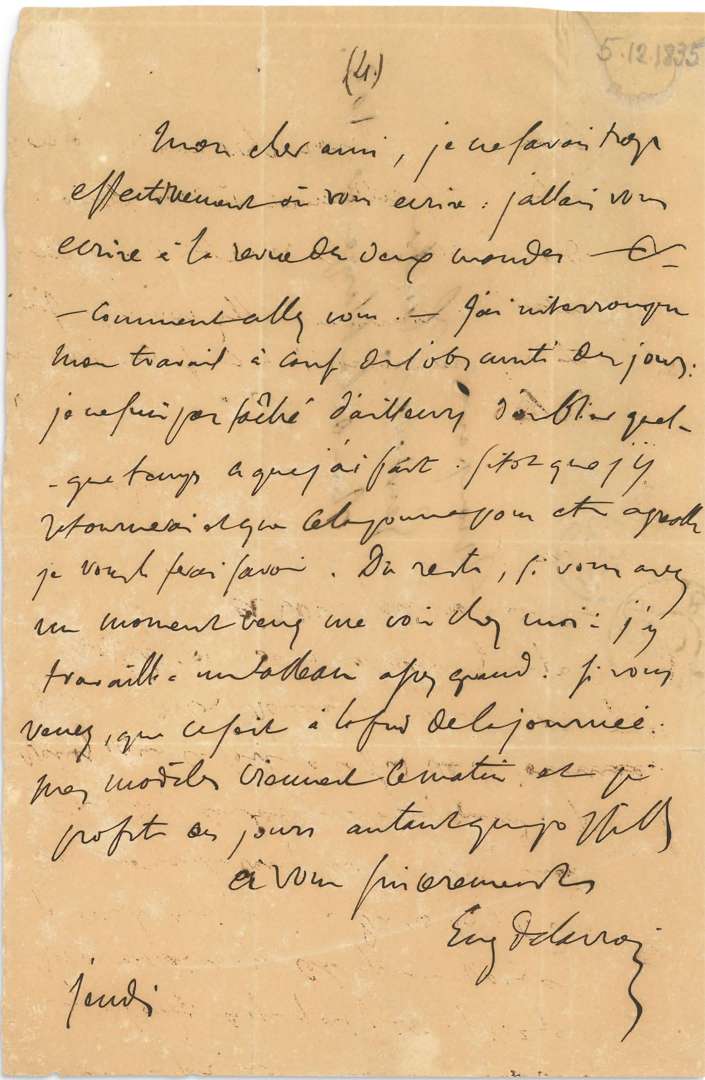 5.12.1835
(4.)
Mon cher ami, je ne savais trop
effectivement où vous ecrire : j'allais vous
ecrire à la revue des deux mondes —
— Comment allez vous. — J'ai interrompu
mon travail à cause de l'obscurité des jours.
je ne suis pas fâché d'ailleurs d'oublier quel-
-que temps ce que j'ai fait. sitot que j'y
retournerai et que cela pourra vous etre agreable
je vous le ferai savoir. Du reste, si vous avez
un moment venez me voir chez moi : j'y
travaille à un tableau assez grand. si vous
venez, que ce soit à la fin de la journée.
mes modèles viennent le matin et je
profite des jours autant que possible
à vous sincerement
Eug Delacroix
jeudi